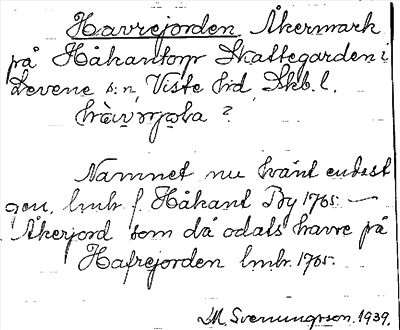 Havrejorden Åkermark
på Håkantorp Skattegården i
Levene s:n, Viste hd, Skb. l.
?
Namnet nu känt endast
gen. lmh f. Håkant By 1765. —
Åkerjord som då odals havre på
Hafrejorden lmh. 1765.
M. Svenungsson. 1939.